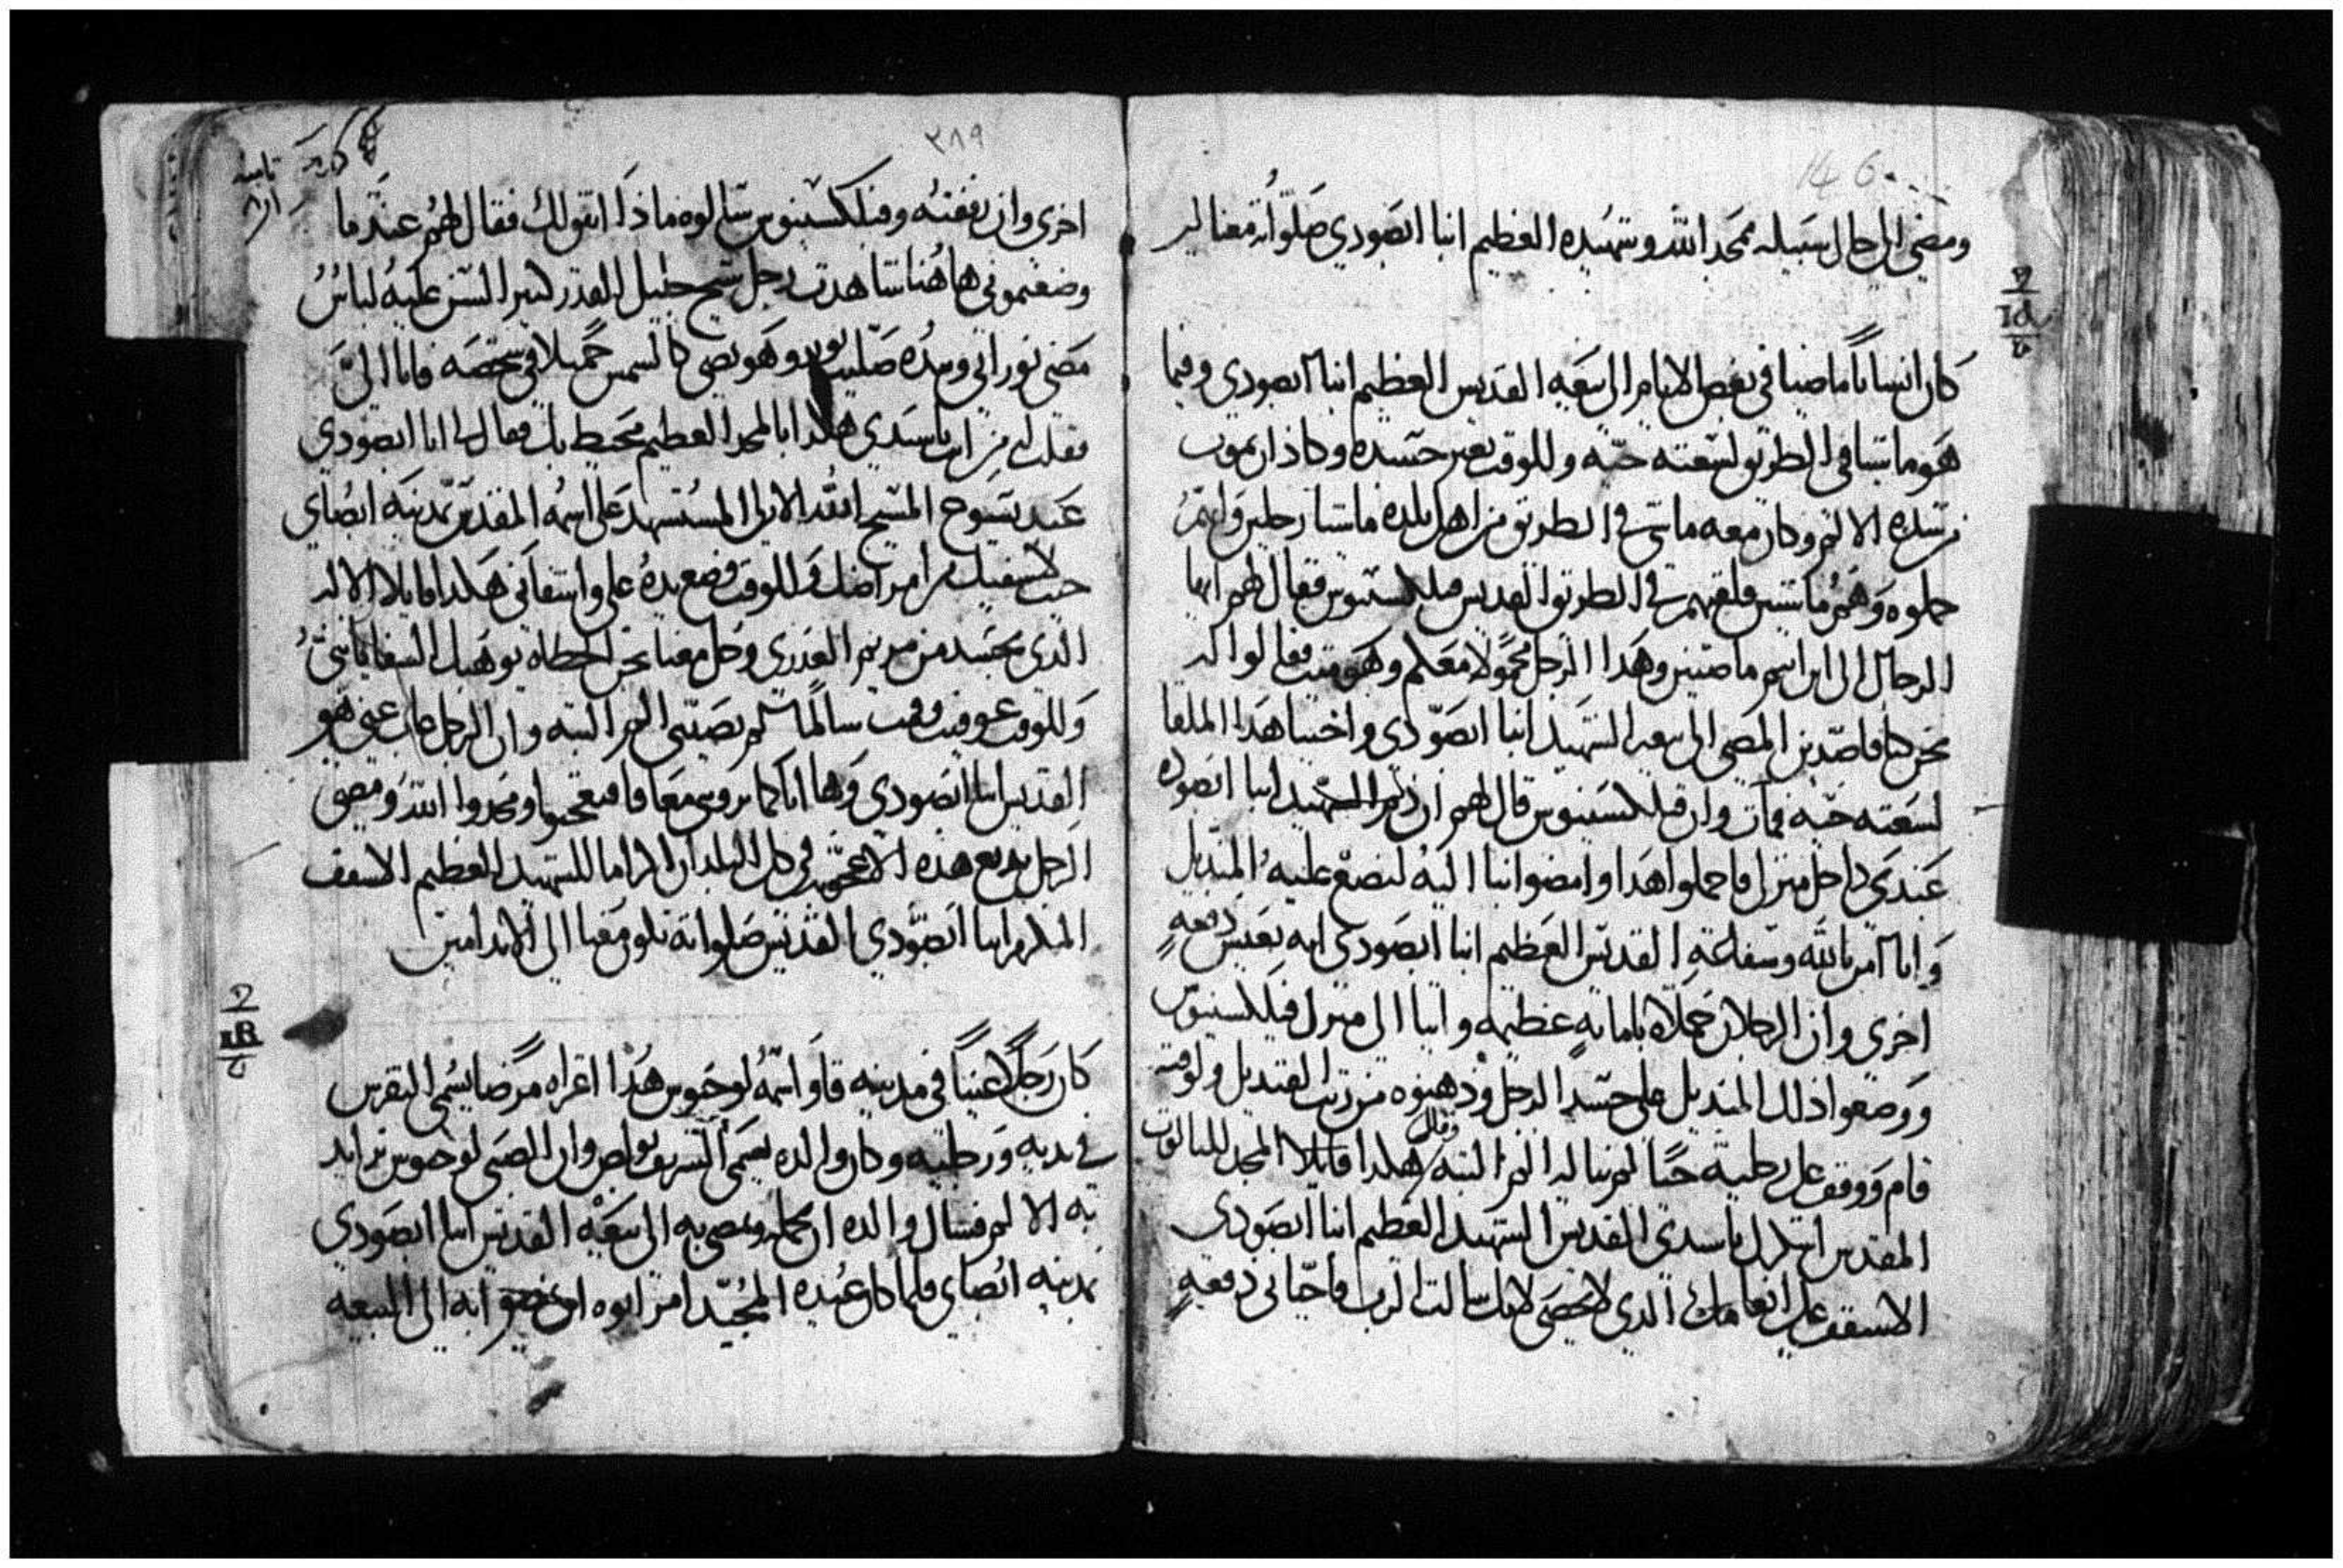 146
ومضي الي حال سبيله ممجد الله وشهيده العظيم انبا ابصودي صلواته معنا امين
كان انسانا ماضيا في بعض الايام الي بيعة القديس العظيم انبا ابصودي وفيما
هو ماشيا في الطريق لسعته حيه وللوقت تغير جسده وكاد ان يموت
من شده الالم وكان معه ماشي في الطريق من اهل بلده ماشيا رجلين وانهم
حملوه وهم ماشيين فلقيهم في الطريق القديس فيلكسينوس فقال لهم ايها
الرجال الي اين انتم ماضيين وهدا الرجل محمولا معكم وهو ميت فقالوا له
نحن كنا قاصدين المضي الي بيعه الشهيد انبا ابصودي واخينا هدا الملقا
لسعته حيه فمات وان فيلكسينوس قال لهم ان الشهيد انبا ابصوده
عندي داخل منزلي فاحملوا هدا وامضوا بنا اليه لنضع عليه المنديل
وانا اامن بالله وشفاعة القديس العظيم انبا ابصودي انه يعيش دفعه
اخري وان الرجلان حملاه بامانه عظيمه واتيا الي منزل فيلكسينوس
ووضعوا ذلك المنديل علي جسد الرجل ودهنوه من زيت القنديل ولوقته
قام ووقف علي رجليه حيا لم يناله الم البته وقال هكدا قايلا المجد للثالوث
المقدس اشكرك يا سيدي القديس الشهيد العظيم انبا ابصودي
الاسقف علي انعامك الدي لا تحصي لانك سالت الرب فاحياني دفعه
٢٨٩
اخري وان رفقته وفيلكسينوس سالوه ماذا اتقولك فقال لهم عندما
وضعتموني هاهنا شاهدت رجل شيخ جليل القدر كبير السن عليه لباس
مضي نوراني وبيده صليب نور وهو يضي كالشمس جميلا في شخصه فاتا الي
فقلت له من انت يا سيدي هكدا بالمجد العظيم محيط بك فقال لي انا ابصودي
عبد يسوع المسيح ابن الله الازلي المستشهد علي اسمه المقدس بمدينه ابصاي
جيت لاشفيك من امراضك وللوقت وضع يده علي واشفاني هكدا قايلا الاله
الدي تجسد من مريم العدري وحل معنا نحن الخطاه يوهبك الشفا يا ابني
وللوقت عوفيت وقمت سالما لم يصيبني الم البته وان الرجل غاب عني هو
القديس انبا ابصودي وها انا كما تروني معافا فتعجبوا ومجدوا الله ومضي
الرجل يديع هده الاعجوبه في كل البلدان اكراما للشهيد العظيم الاسقف
المكرم انبا ابصودي القديس صلواته تكون معنا الي الابد امين
كان رجلا غنيا في مدينه قاو اسمه لوخيوس هدا اعراه مرضا يسمي النقرس
في يديه ورجليه وكان والده يسمي الشريف بولص وان الصبي لوخيوس تزايد
به الالم فسال والده ان يحمله ويمضي به الي بيعة القديس انبا ابصودي
بمدينه ابصاي فلما كان عيده المجيد امر ابوه ان يمضوا به الي البيعه